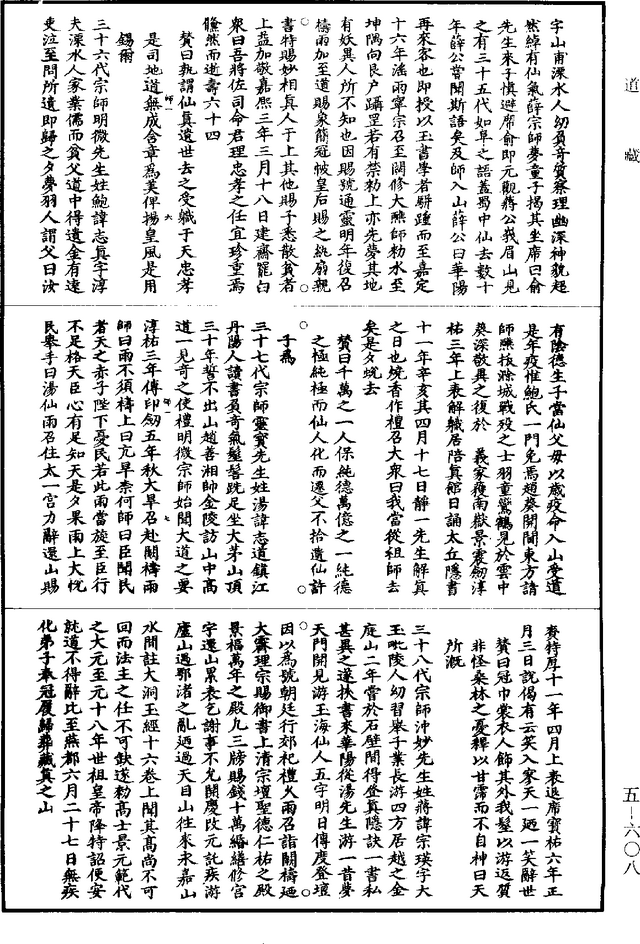 字山甫溧水人幼負奇質察理幽深神貌超
然綽有仙氣薛宗師夢童子揭其坐席曰俞
先生來子慎避席俞即元觀蔣公峩眉山見
之有三十五代如草之語蓋蜀中仙去數十
年薛公嘗聞斯語矣及師入山薛公曰華陽
再來客也即授以玉書學者駢踵而至嘉定
十六年滛雨寧宗召至闕修大醮師勑水至
坤隅向艮戶躡罡若有禁勑上亦先夢其地
有妖異人所不知也因賜號通靈明年復召
禱雨加至道賜泉簡冠帔皇后賜之紈扇親
書特賜妙相真人于上其他賜予悉散貧者
上益加敬嘉熙三年三月十八日建齋罷白
衆曰吾將佐司命君理忠孝之任宜珍重焉
儵然而逝壽六十四
贊曰孰謂仙真遺世去之受職于天忠孝
是司地道無成含章爲美俾揚皇風是用
錫爾
三十六代宗師明微先生姓鮑諱志真字淳
夫溧水人家業儒而貧父道中得遺金有遠
吏泣至問所遺即歸之夕夢羽人謂父曰汝
有陰德生子當仙父母以歲疫命入山受道
是年疫惟鮑氏一門免焉趙葵開閫東方請
師醮拔滁城戰歿之士羽童鸞鶴見於雲中
葵深敬異之復於義家獲南嶽景震劒淳
祐三年上表解職居陪真館日誦太丘隱書
十一年辛亥其四月十七日靜一先生解真
之日也焼香作禮召大衆曰我當從祖師去
矣是夕蛻去
贊曰千萬之一人保純德萬億之一純德
之極純極而仙人化而遷父不拾遺仙許
子焉
三十七代宗師靈寶先生姓湯諱志道鎮江
丹陽人讀書負奇氣髽髻跣足坐大茅山頂
三十年誓不出山趙善湘帥金陵訪山中高
道一見奇之使禮明微宗師始聞大道之要
淳祐三年傳印劒五年秋大旱召赴闕禱雨
師曰雨不須禱上曰亢旱柰何師曰臣聞民
者天之赤子陛下憂民若此雨當旋至臣行
不足格天臣心有足知天是夕果雨上大悅
民舉手曰湯仙雨召住太一宫力辭還山賜
賚特厚十一年四月上表退席寶祐六年正
月三日說偈有云笑入寥天一廼一笑辭世
贊曰冠巾裳衣人飾其外我髽以游返質
非怪桑林之憂釋以甘霈而不自神曰天
所溉
三十八代宗師沖妙先生姓蔣諱宗瑛字大
玉毗陵人幼習舉子業長游四方居越之金
庭山二年嘗於石壁間得登真隱訣一書私
甚異之遂扶書來華陽從湯先生游一昔夢
天門開見游玉海仙人五字明日傳度登壇
因以爲號朝廷行郊祀禮火雨召詣闕禱廼
大霽理宗賜御書上清宗壇聖德仁祐之殿
景福萬年之殿九三牓賜錢十萬緡繕修宫
宇還山累表乞謝事不允開慶改元託疾游
廬山過鄂渚之亂廼過天目山往來永嘉山
水間註大洞玉經十六卷上聞其髙尚不可
回而法主之任不可缺遂勑髙士景元範代
之大元至元十八年世祖皇帝降特詔便安
就道不得辭比至燕都六月二十七日無疾
化弟子奉冠履歸葬藏真之山
道藏
五-六〇八
師一
六
師一
七